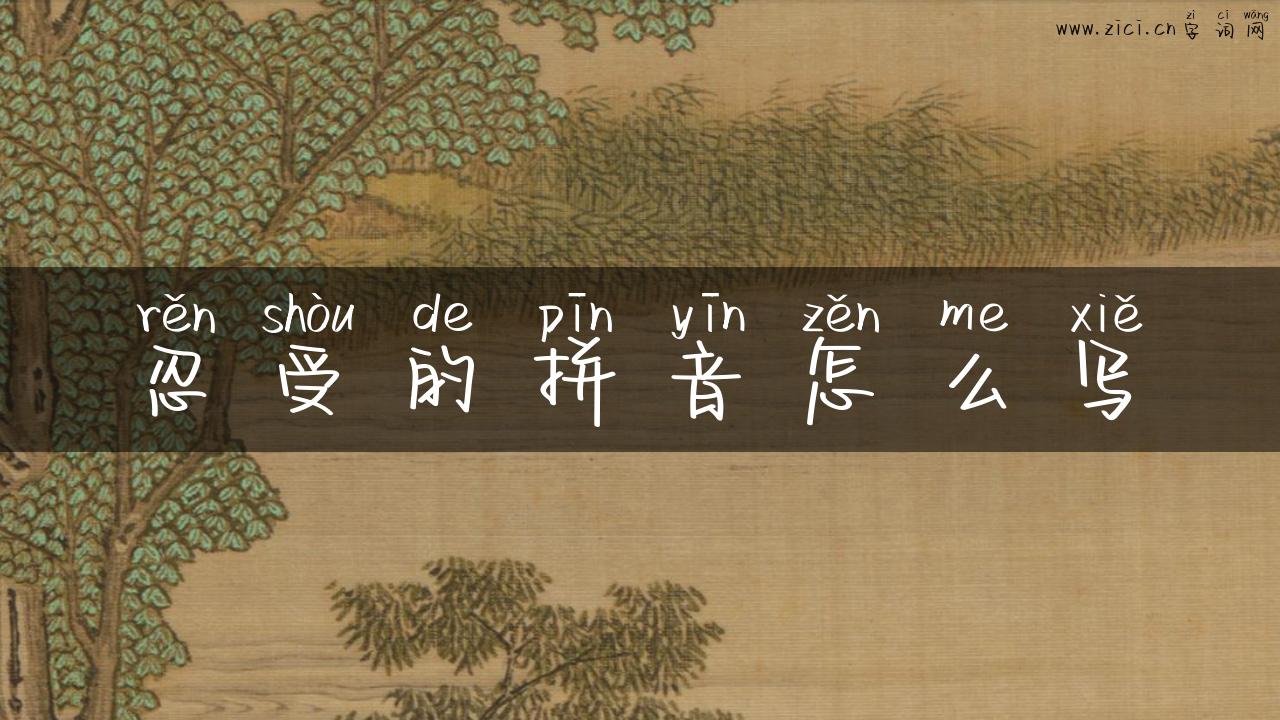 zì cí wǎng
www.zici.cn 字词网
rěn shòu de pīn yīn zěn me xiě
忍受的拼音怎么写